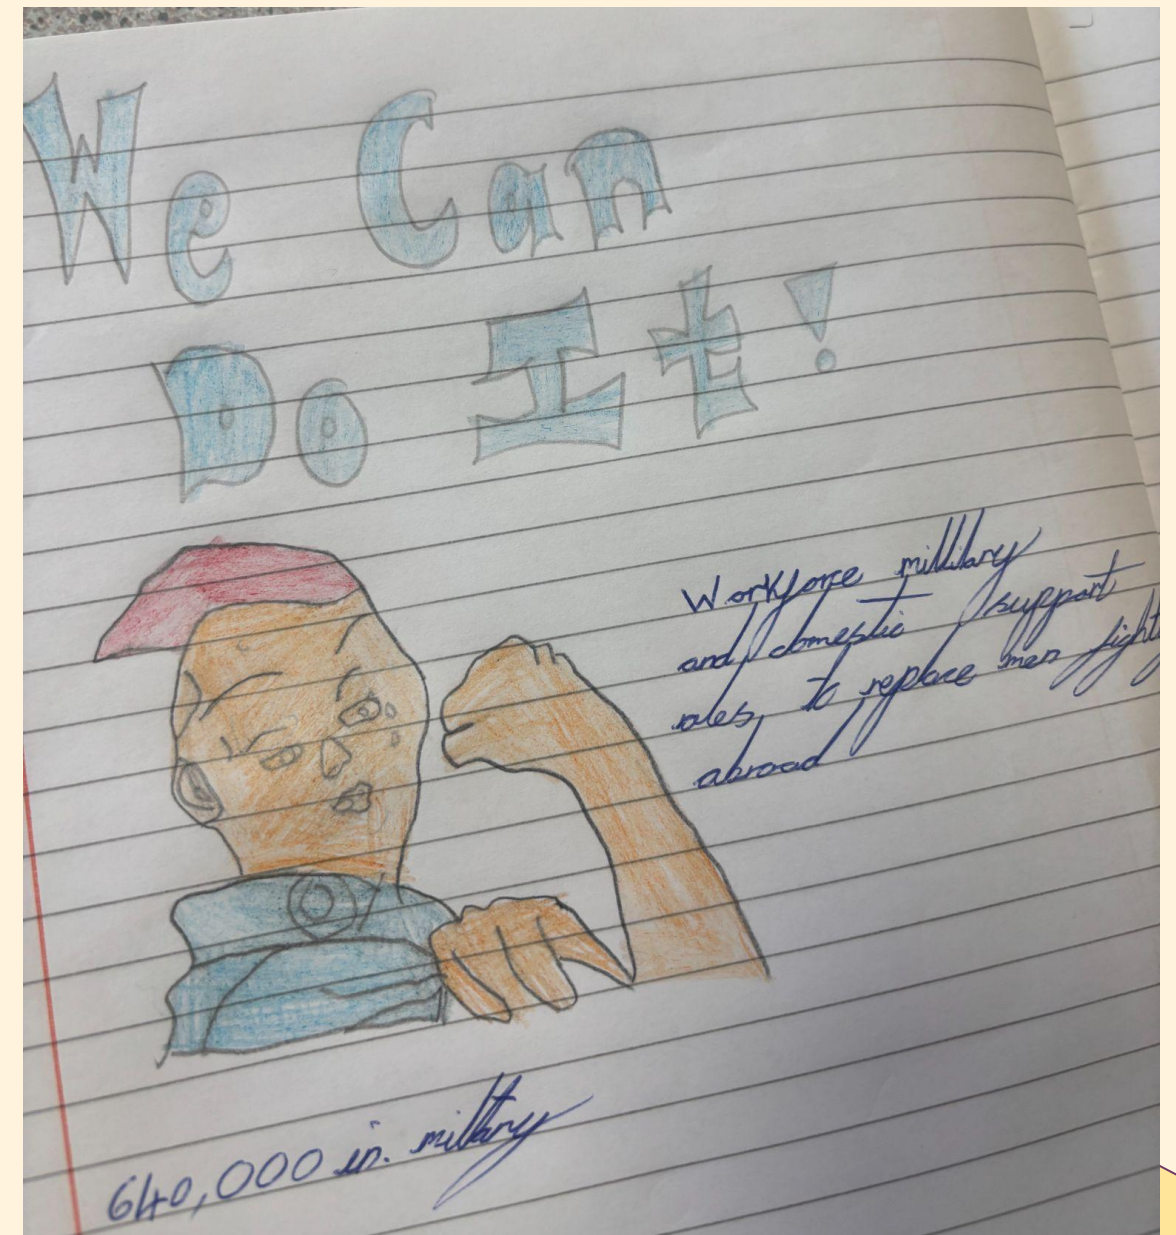 We Can
Do It!
Workforce millitary
and domestic support
roles, to replace men
abroad
640,000 in. millitary